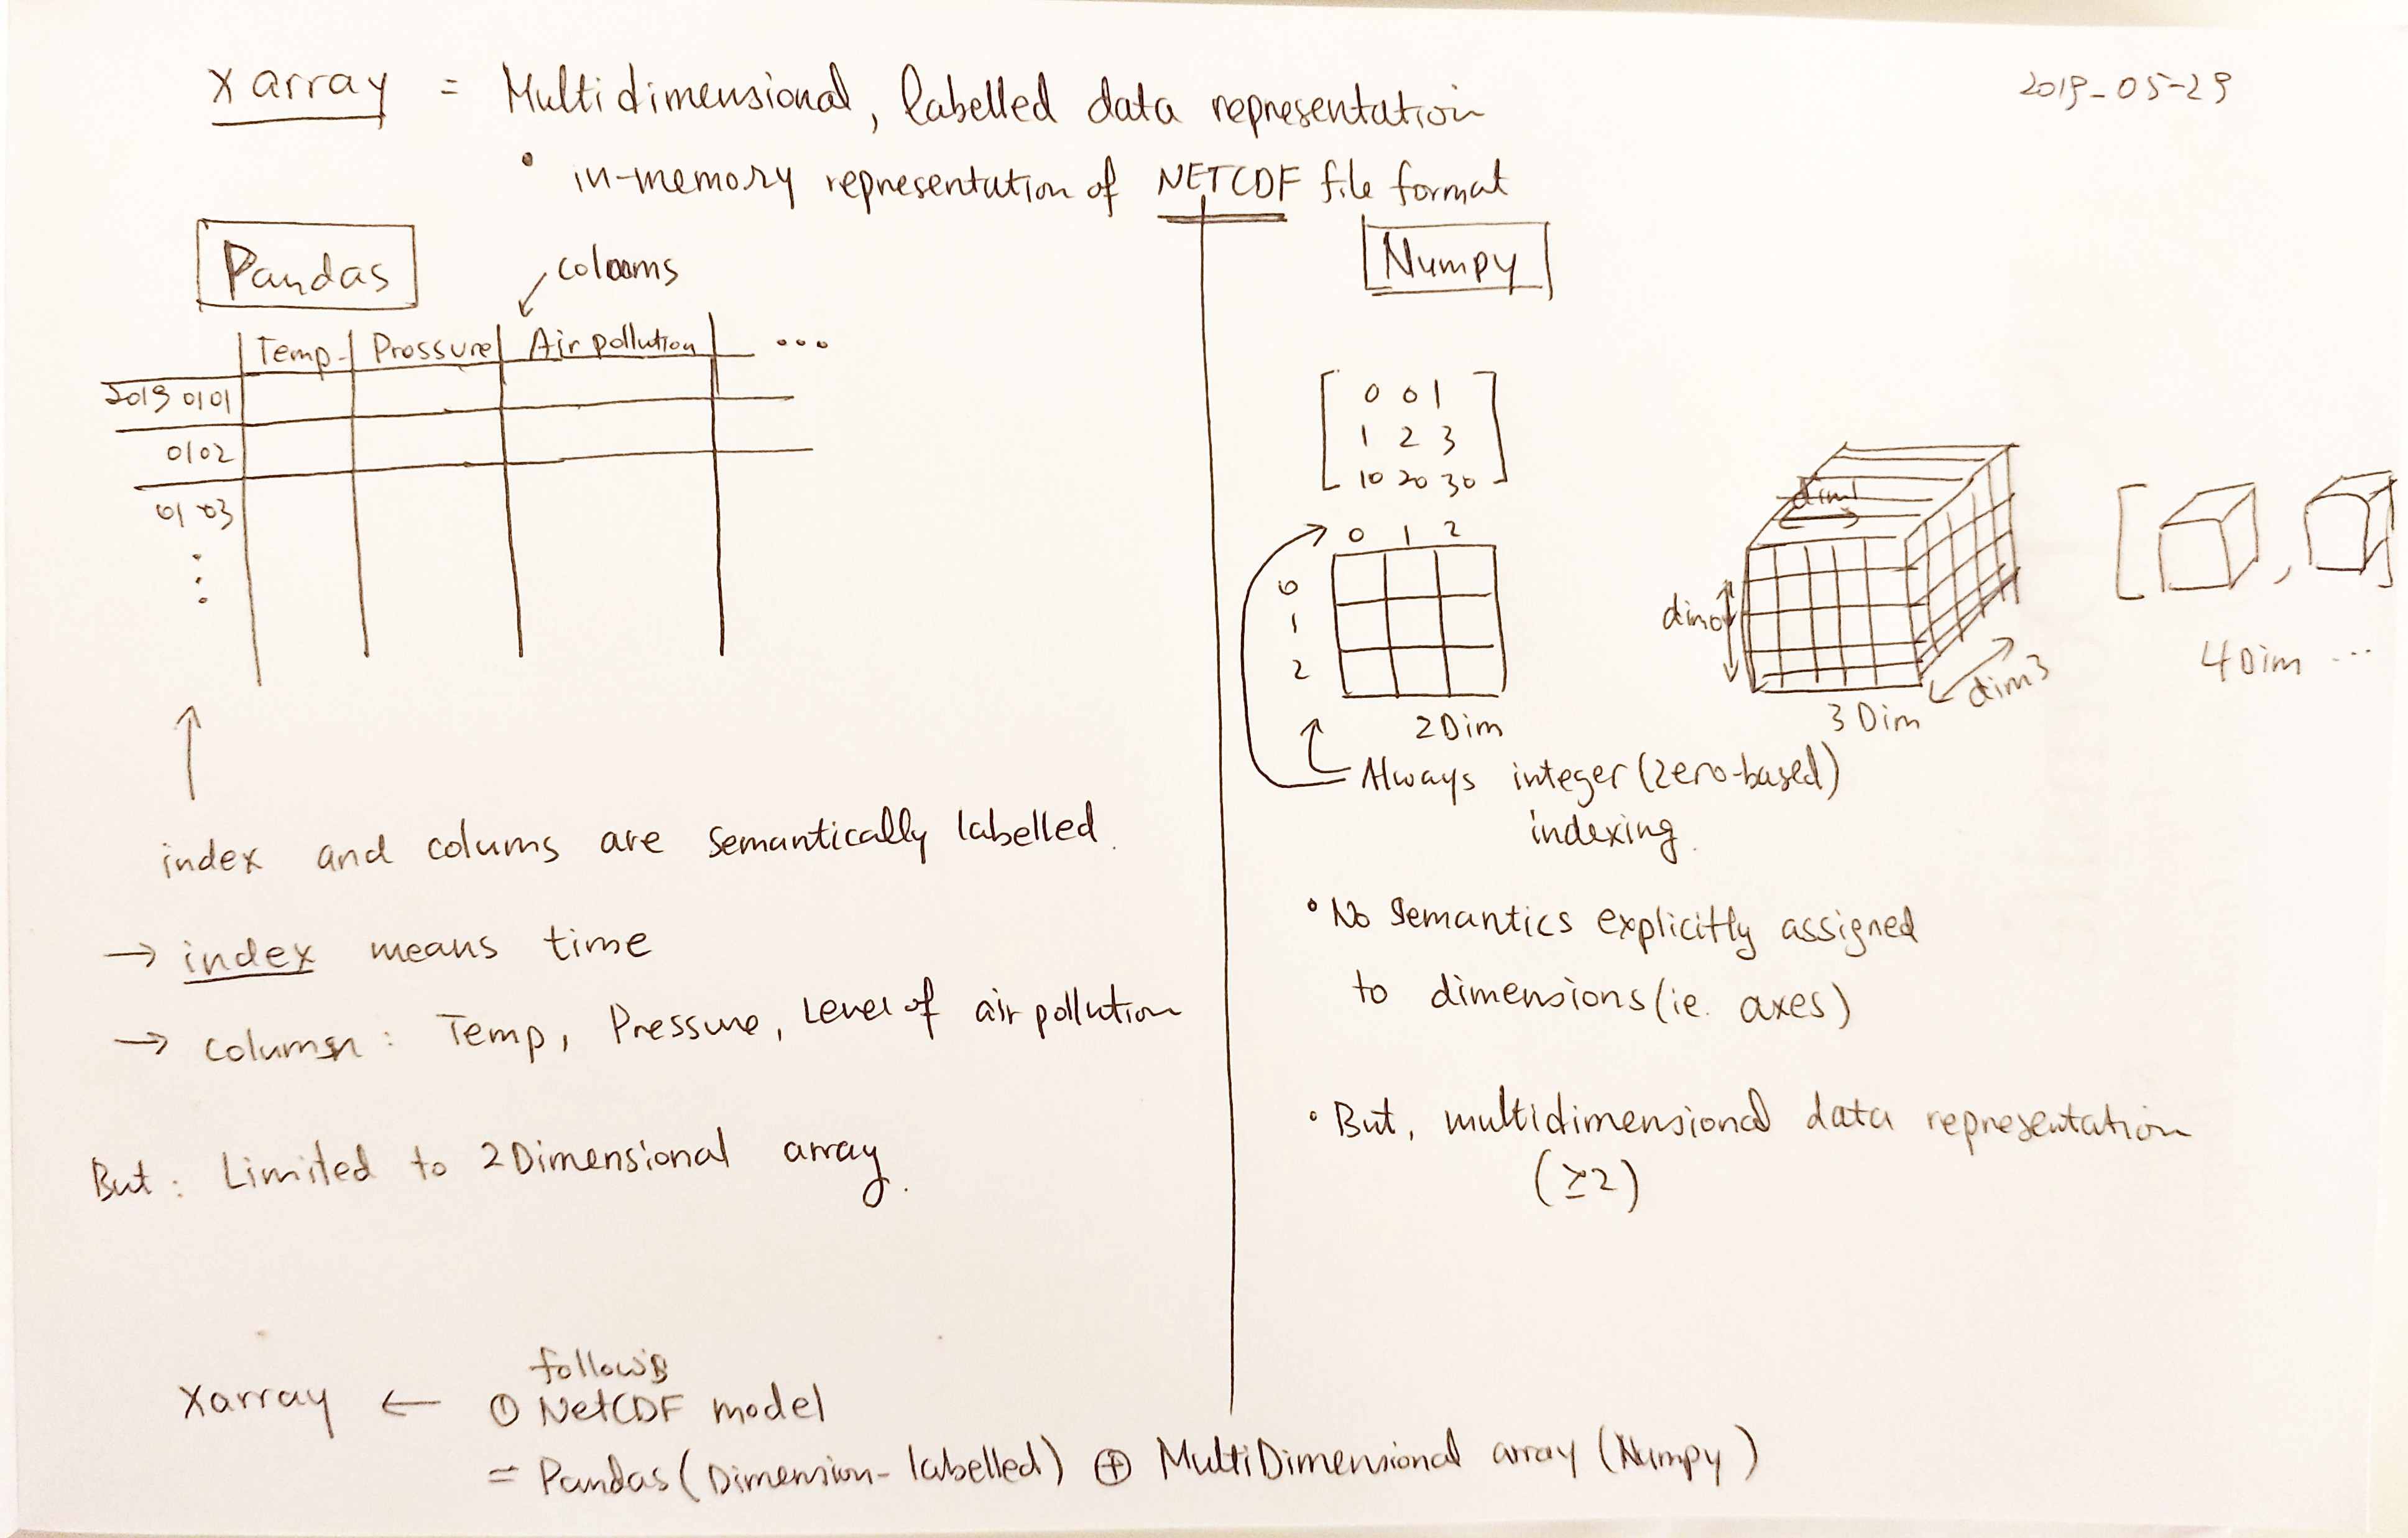 xarray = Multidimensional, labelled data representation
2019-05-29
• in-memory representation of NETCDF file format
Pandas
coloums
Temp. Pressure Air pollution ...
2019 0101
0102
0103
index and colums are semantically labelled.
→ index means time
→ column: Temp, Pressure, Level of air pollution
But: Limited to 2Dimensional array.
Numpy
0 0 1
1 2 3
10 20 30
0 1 2
0
1
2
2Dim
dim1
dim0
dim3
3Dim
[ , ]
4Dim ...
Always integer (zero-based)
indexing.
• No semantics explicitly assigned
to dimensions (ie. axes)
• But, multidimensional data representation
(≥2)
follows
xarray ← ① NetCDF model
= Pandas (Dimension-labelled) ⊕ MultiDimensional array (Numpy)